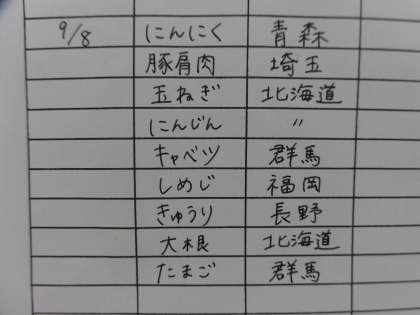 9/8 にんにく 青森
豚肩肉 埼玉
玉ねぎ 北海道
にんじん 〃
キャベツ 群馬
しめじ 福岡
きゅうり 長野
大根 北海道
たまご 群馬